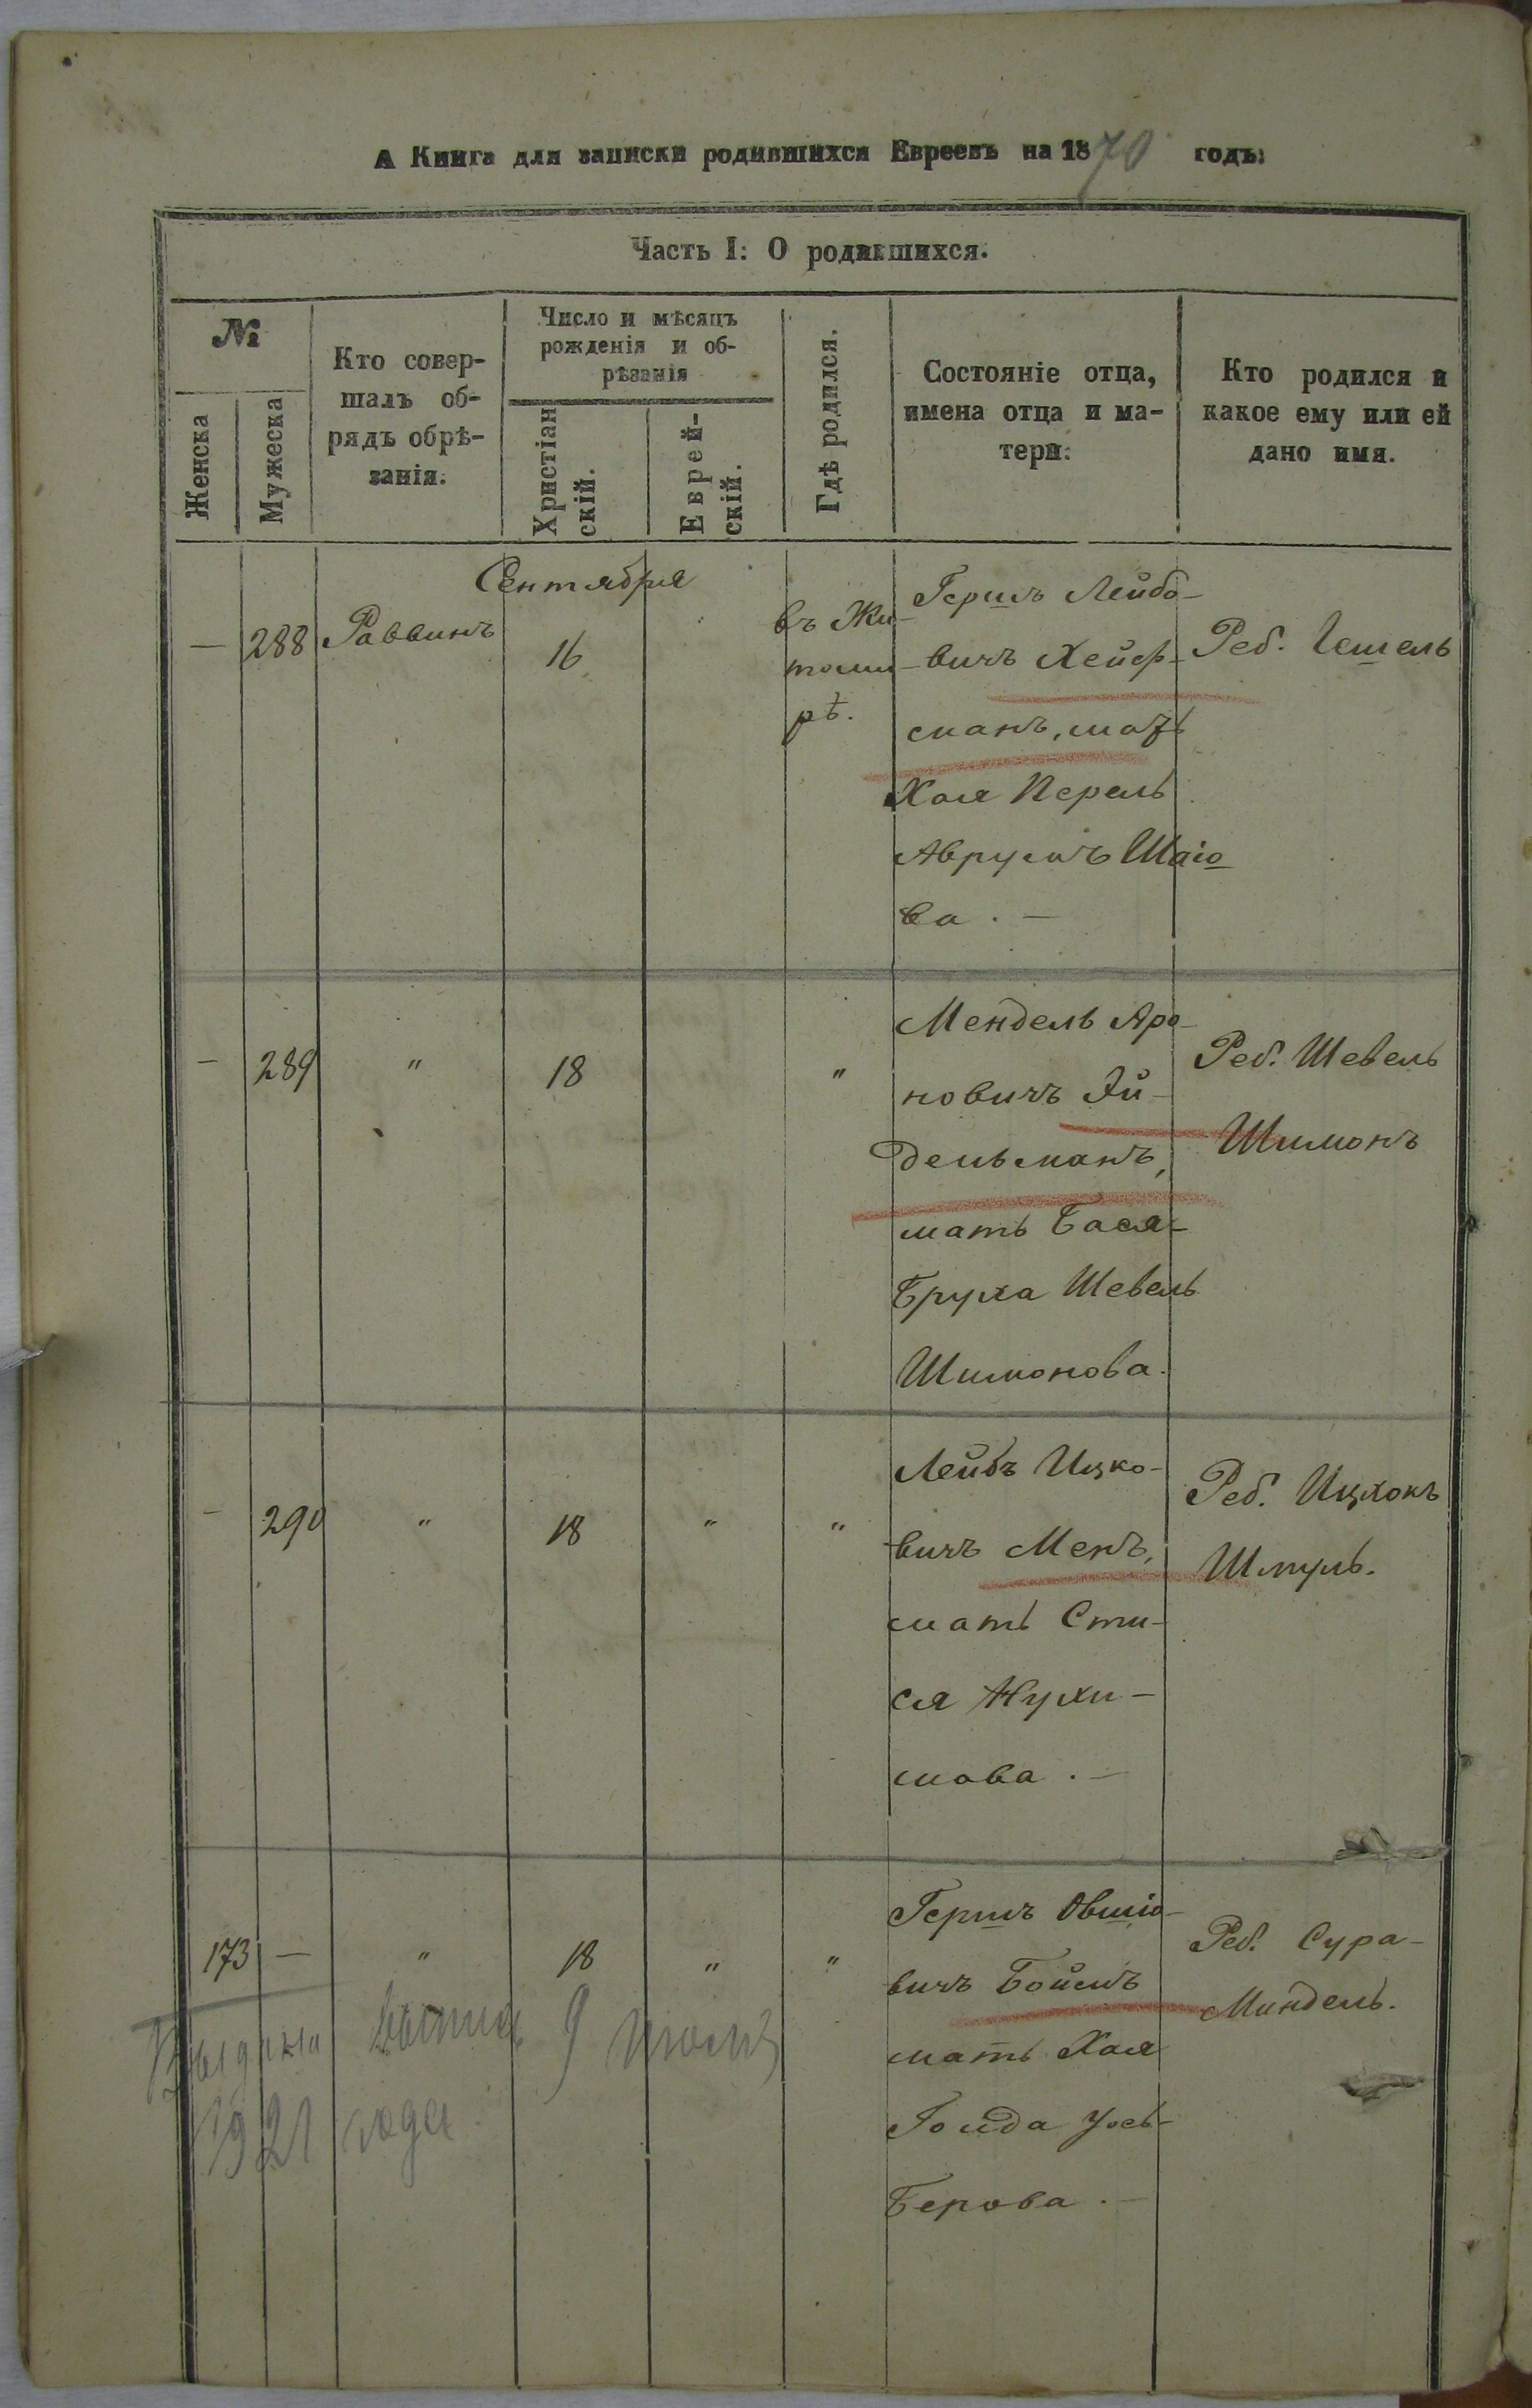 А Книга для записки родившихся Евреевъ на 1870 годъ:
Часть I: О родившихся.
№
Женска
Мужеска
Кто совер-
шалъ об-
рядъ обрѣ-
занія.
Число и мѣсяцъ
рожденія и об-
рѣзанія
Христіан
скій.
Еврей-
скій.
Гдѣ родился.
Состояніе отца,
имена отца и ма-
тери:
Кто родился и
какое ему или ей
дано имя.
Сентября
— 288 Раввинъ 16
въ Жи-
томи-
рѣ.
Гершъ Лейбо-
вичъ Хейф-
манъ, мать
Хая Перель
Аврумъ Шаіо
ва. —
Реб. Гешель
— 289 " 18 "
Мендель Аро-
новичъ Эй-
дельманъ,
мать Бася-
Бруха Шевель
Шимонова.
Реб. Шевель
Шимонъ
— 290 " 18 " "
Лейбъ Ицко-
вичъ Менъ,
мать Сти-
ся Нухи-
мова. —
Реб. Ицхокъ
Шмуль.
173 — " 18 " "
Гершъ Овшіо-
вичъ Боймъ
мать Хая
Голда Уось-
Берова. —
Реб. Сура-
Миндель.
Выдана 9
1921 года